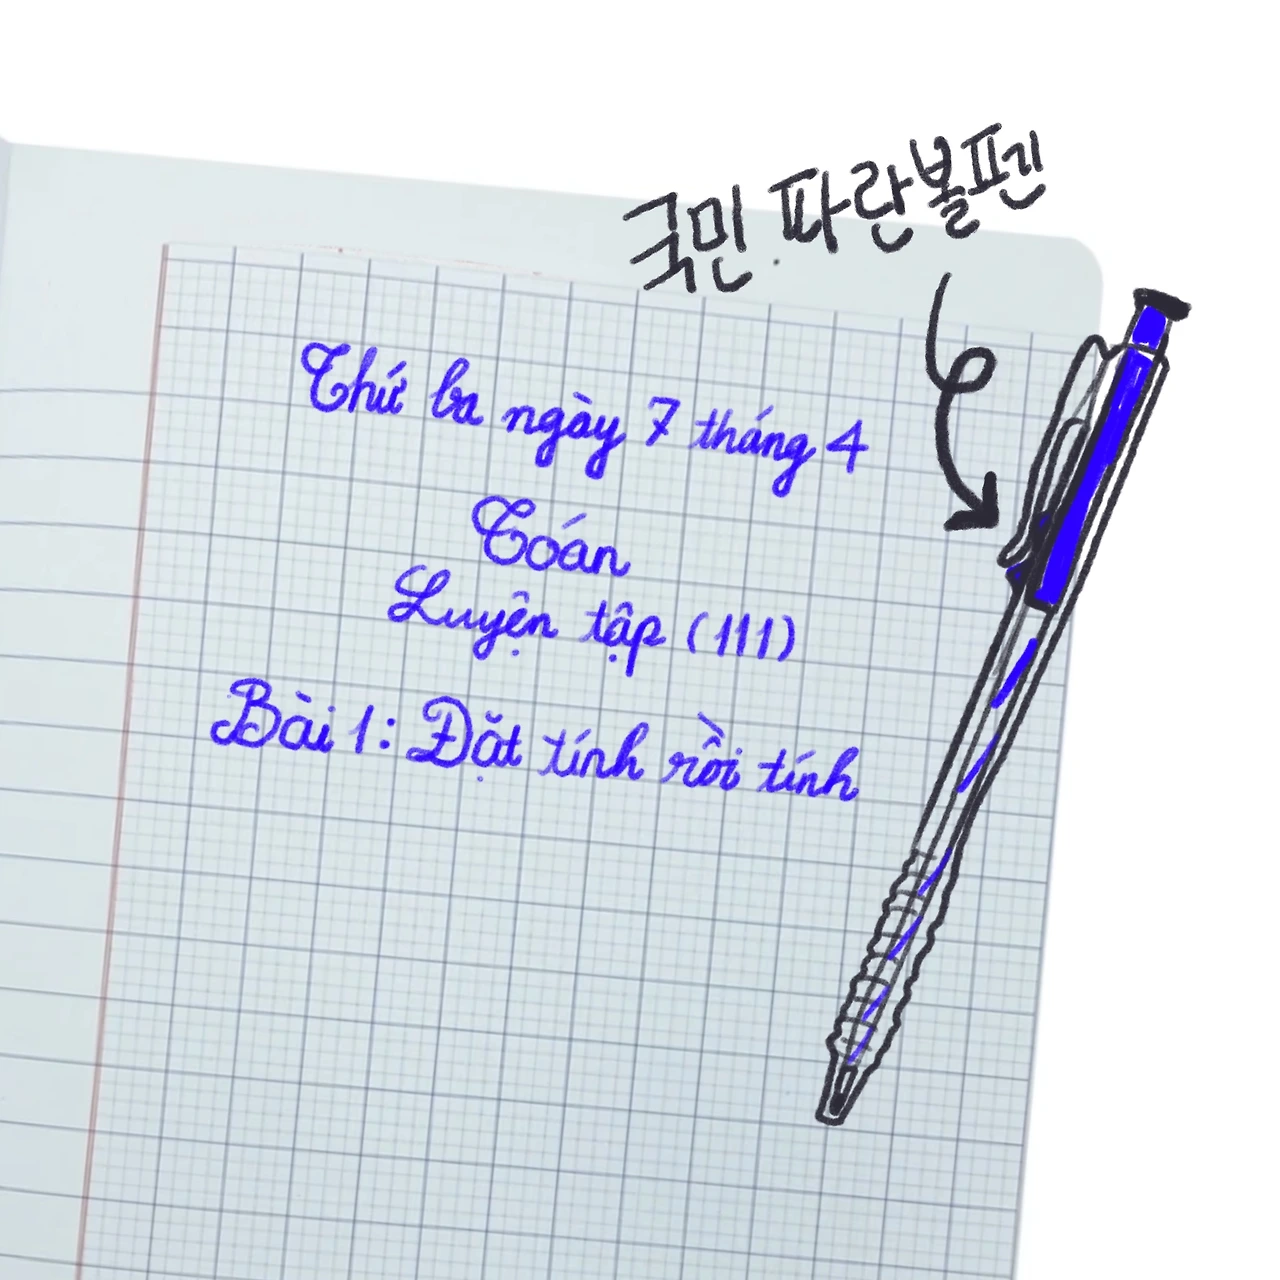 국민 파란볼펜
Thứ ba ngày 7 tháng 4
Toán
Luyện tập (111)
Bài 1: Đặt tính rồi tính